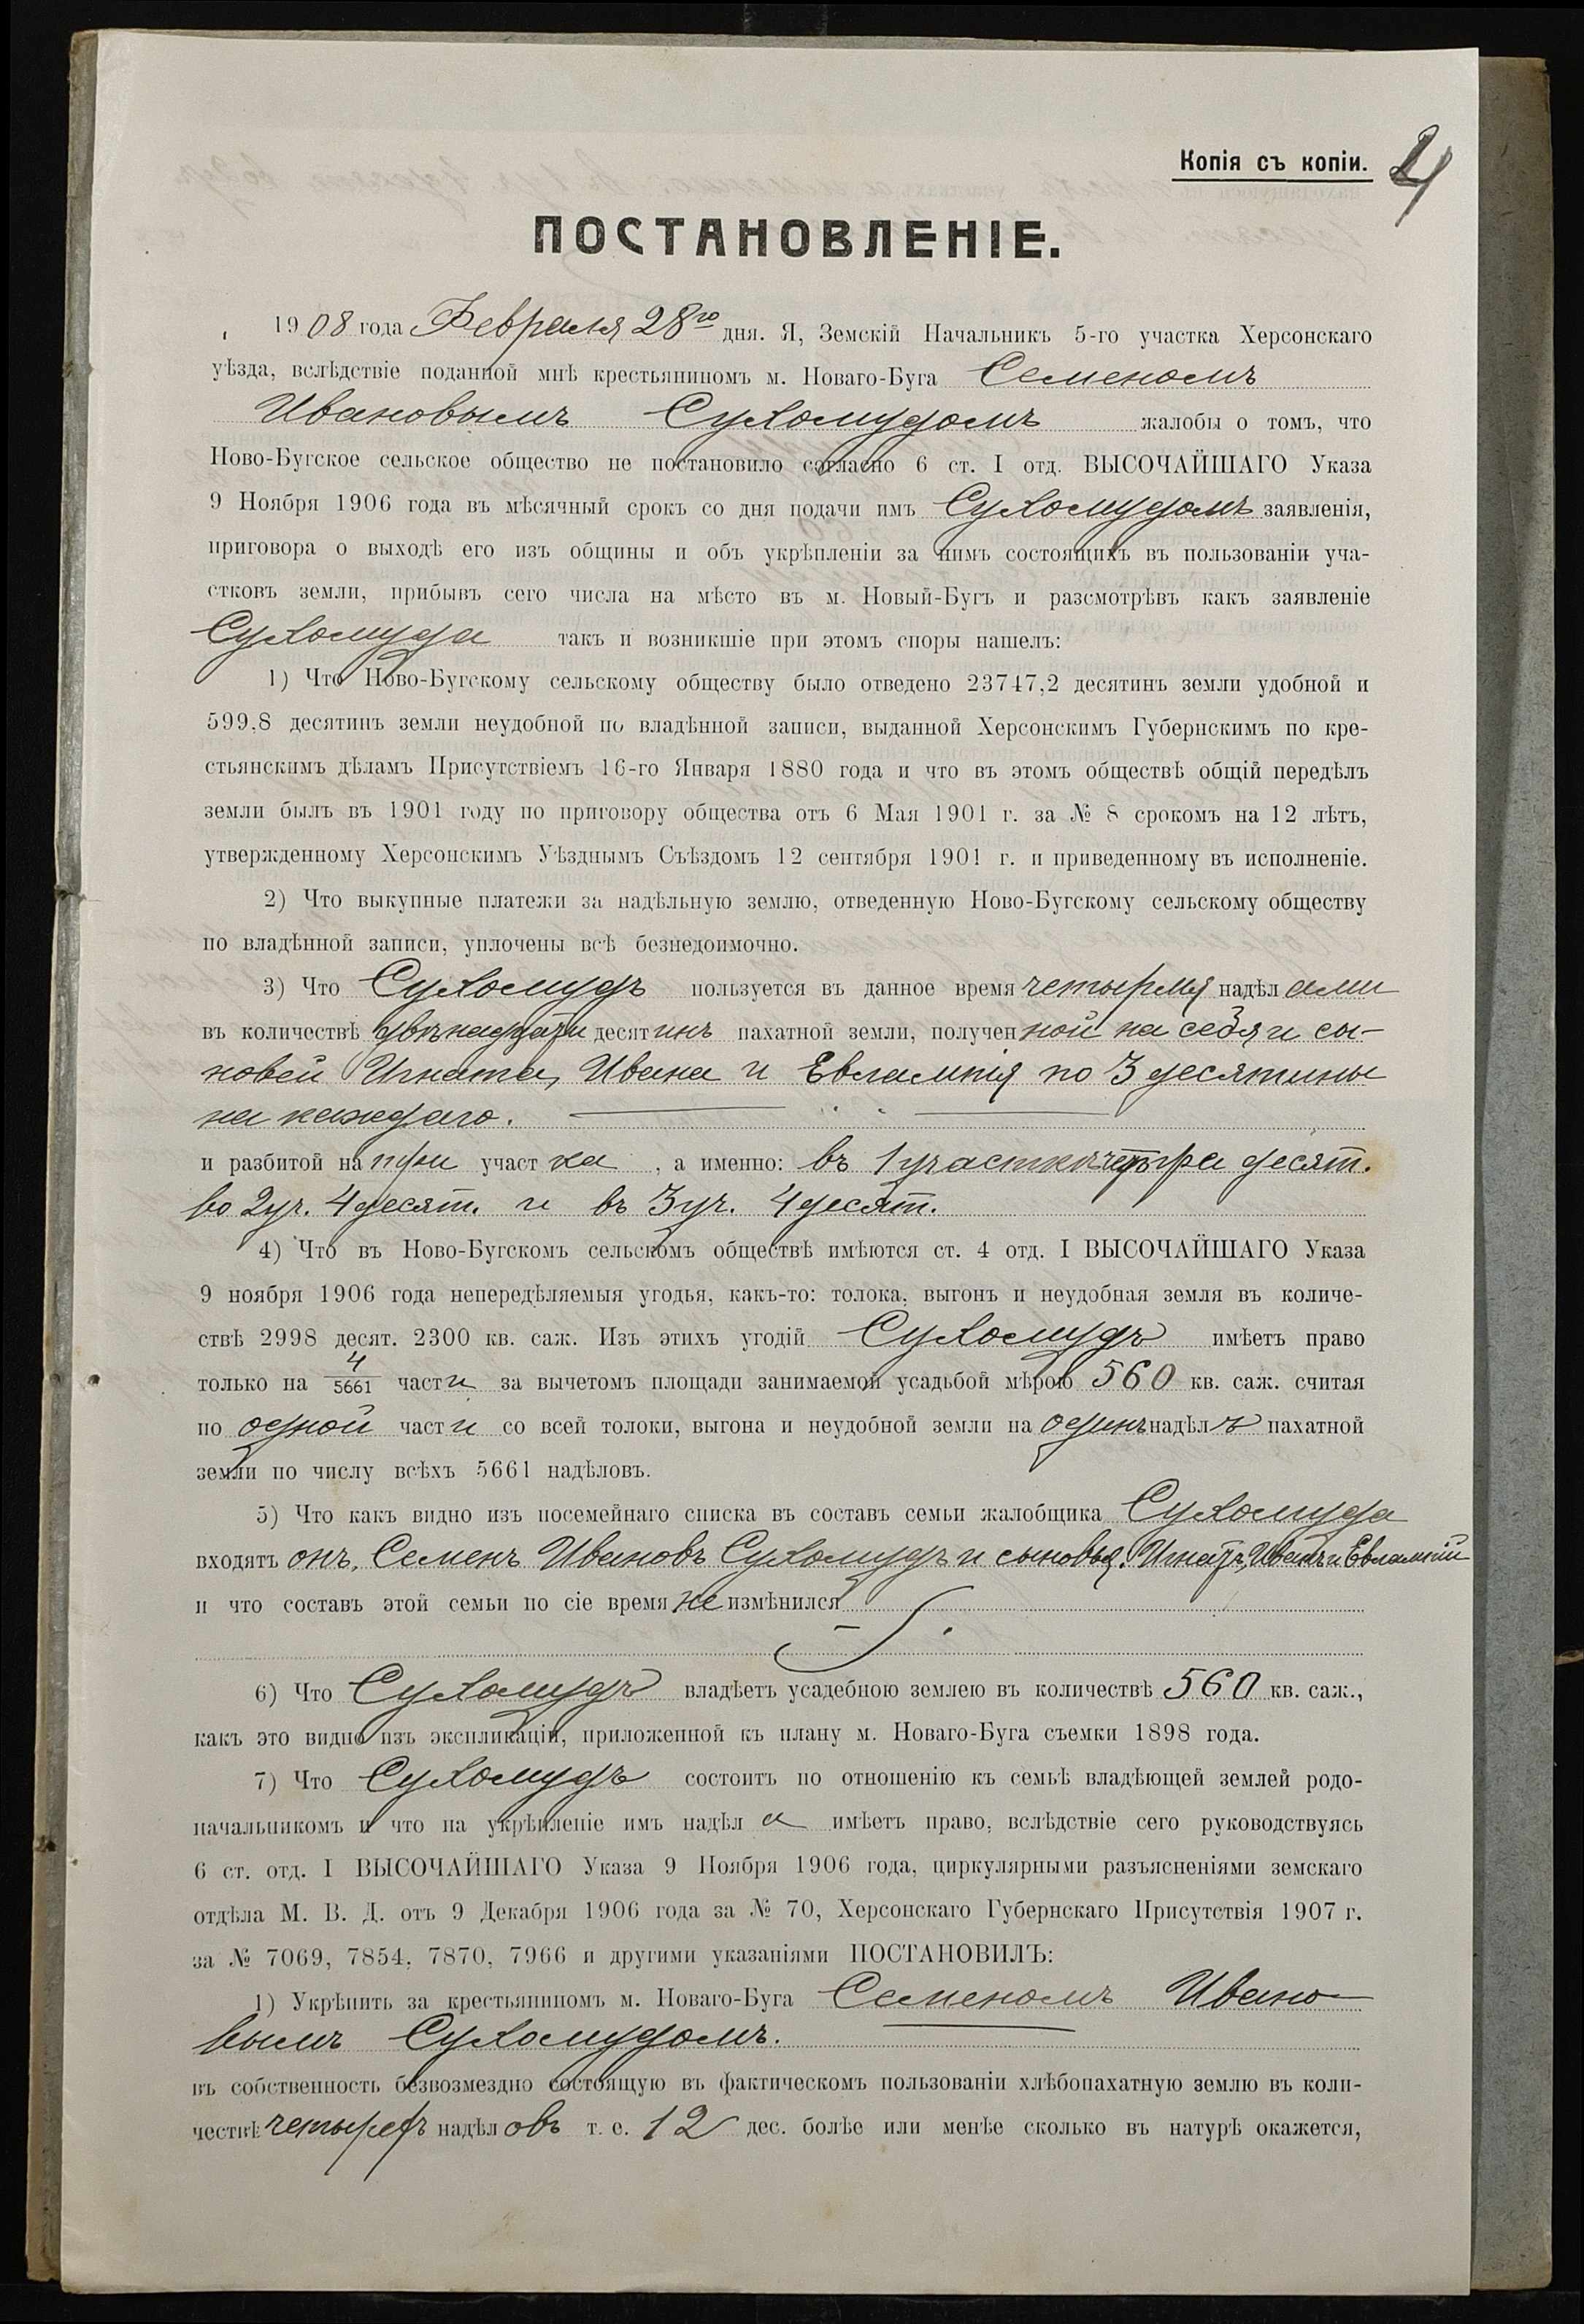 Копія съ копіи. 4
ПОСТАНОВЛЕНІЕ.
1908 года Февраля 28го дня. Я, Земскій Начальникъ 5-го участка Херсонскаго
уѣзда, вслѣдствіе поданной мнѣ крестьяниномъ м. Новаго-Буга Семеномъ
Ивановымъ Сухомудомъ жалобы о томъ, что
Ново-Бугское сельское общество не постановило согласно 6 ст. I отд. ВЫСОЧАЙШАГО Указа
9 Ноября 1906 года въ мѣсячный срокъ со дня подачи имъ Сухомудомъ заявленія,
приговора о выходѣ его изъ общины и объ укрѣпленіи за нимъ состоящихъ въ пользованіи уча-
стковъ земли, прибывъ сего числа на мѣсто въ м. Новый-Бугъ и разсмотрѣвъ какъ заявленіе
Сухомуда такъ и возникшіе при этомъ споры нашелъ:
1) Что Ново-Бугскому сельскому обществу было отведено 23747,2 десятинъ земли удобной и
599,8 десятинъ земли неудобной по владѣнной записи, выданной Херсонскимъ Губернскимъ по кре-
стьянскимъ дѣламъ Присутствіемъ 16-го Января 1880 года и что въ этомъ обществѣ общій передѣлъ
земли былъ въ 1901 году по приговору общества отъ 6 Мая 1901 г. за № 8 срокомъ на 12 лѣтъ,
утвержденному Херсонскимъ Уѣзднымъ Съѣздомъ 12 сентября 1901 г. и приведенному въ исполненіе.
2) Что выкупные платежи за надѣльную землю, отведенную Ново-Бугскому сельскому обществу
по владѣнной записи, уплочены всѣ безнедоимочно.
3) Что Сухомудъ пользуется въ данное время четырмя надѣлами
въ количествѣ двѣнадцати десятинъ пахатной земли, полученной на себя и сы-
новей Игната, Ивана и Евлампія по 3 десятины
на каждаго.
и разбитой на три участка, а именно: въ 1 участкѣ четыре десят.
во 2 уч. 4 десят. и въ 3 уч. 4 десят.
4) Что въ Ново-Бугскомъ сельскомъ обществѣ имѣются ст. 4 отд. I ВЫСОЧАЙШАГО Указа
9 ноября 1906 года непередѣляемыя угодья, какъ-то: толока, выгонъ и неудобная земля въ количе-
ствѣ 2998 десят. 2300 кв. саж. Изъ этихъ угодій Сухомудъ имѣетъ право
только на 4/5661 части за вычетомъ площади занимаемой усадьбой мѣрою 560 кв. саж. считая
по одной части со всей толоки, выгона и неудобной земли на одинъ надѣлъ пахатной
земли по числу всѣхъ 5661 надѣловъ.
5) Что какъ видно изъ посемейнаго списка въ составъ семьи жалобщика Сухомуда
входятъ онъ, Семенъ Ивановъ Сухомудъ и сыновья: Игнатъ, Иванъ и Евлампій
и что составъ этой семьи по сіе время не измѣнился
6) Что Сухомудъ владѣетъ усадебною землею въ количествѣ 560 кв. саж.,
какъ это видно изъ экспликаціи, приложенной къ плану м. Новаго-Буга съемки 1898 года.
7) Что Сухомудъ состоитъ по отношенію къ семьѣ владѣющей землей родо-
начальникомъ и что на укрѣпленіе имъ надѣла имѣетъ право, вслѣдствіе сего руководствуясь
6 ст. отд. I ВЫСОЧАЙШАГО Указа 9 Ноября 1906 года, циркулярными разъясненіями земскаго
отдѣла М. В. Д. отъ 9 Декабря 1906 года за № 70, Херсонскаго Губернскаго Присутствія 1907 г.
за № 7069, 7854, 7870, 7966 и другими указаніями ПОСТАНОВИЛЪ:
1) Укрѣпить за крестьяниномъ м. Новаго-Буга Семеномъ Ивано-
вымъ Сухомудомъ.
въ собственность безвозмездно состоящую въ фактическомъ пользованіи хлѣбопахатную землю въ коли-
чествѣ четырехъ надѣловъ т. е. 12 дес. болѣе или менѣе сколько въ натурѣ окажется,